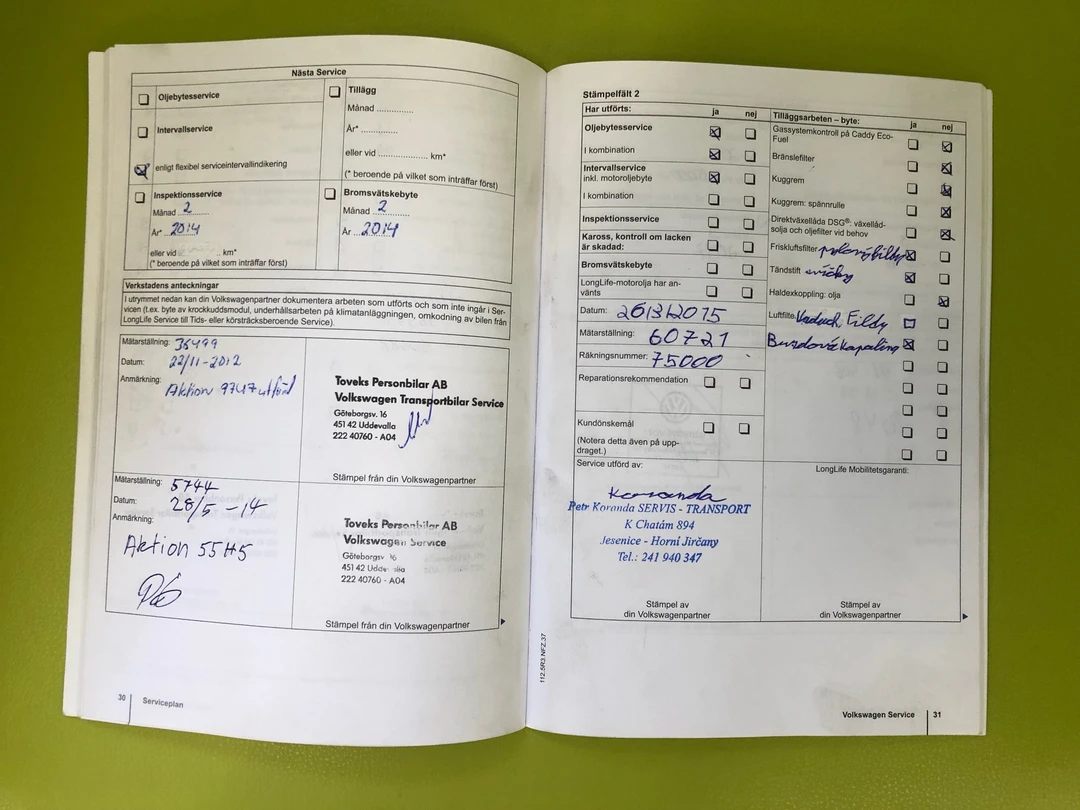 Nästa Service
Oljebytesservice
Intervallservice
enligt flexibel serviceintervallindikering
Tillägg
Månad ............
År* ............
eller vid .................... km*
(* beroende på vilket som inträffar först)
Inspektionsservice
Månad 2
År* 2014
eller vid ............ km*
(* beroende på vilket som inträffar först)
Bromsvätskebyte
Månad 2
År 2014
Verkstadens anteckningar
I utrymmet nedan kan din Volkswagenpartner dokumentera arbeten som utförts och som inte ingår i Ser-
vicen (t.ex. byte av krockkuddsmodul, underhållsarbeten på klimatanläggningen, omkodning av bilen från
LongLife Service till Tids- eller körsträcksberoende Service).
Mätarställning: 36499
Datum: 22/11-2012
Anmärkning: Aktion 9747 utförd
Toveks Personbilar AB
Volkswagen Transportbilar Service
Göteborgsv. 16
451 42 Uddevalla
222 40760 - A04
Stämpel från din Volkswagenpartner
Mätarställning: 5744
Datum: 28/5 -14
Anmärkning:
Aktion 55H5
Toveks Personbilar AB
Volkswagen Service
Göteborgsv 16
451 42 Uddevalla
222 40760 - A04
Stämpel från din Volkswagenpartner
30
Serviceplan
Stämpelfält 2
Har utförts: ja nej
Oljebytesservice
I kombination
Intervallservice
inkl. motoroljebyte
I kombination
Inspektionsservice
Kaross, kontroll om lacken
är skadad:
Bromsvätskebyte
LongLife-motorolja har an-
vänts
Datum: 26/3/2015
Mätarställning: 60721
Räkningsnummer: 75000
Reparationsrekommendation
Kundönskemål
(Notera detta även på upp-
draget.)
Tilläggsarbeten – byte: ja nej
Gassystemkontroll på Caddy Eco-
Fuel
Bränslefilter
Kuggrem
Kuggrem: spännrulle
Direktväxellåda DSG®: växellåd-
solja och oljefilter vid behov
Friskluftsfilter
Tändstift svíčky
Haldexkoppling: olja
Luftfilter
Service utförd av:
Koranda
Petr Koranda SERVIS - TRANSPORT
K Chatám 894
Jesenice - Horní Jirčany
Tel.: 241 940 347
Stämpel av
din Volkswagenpartner
LongLife Mobilitetsgaranti:
Stämpel av
din Volkswagenpartner
112.5R3.NFZ.37
Volkswagen Service
31